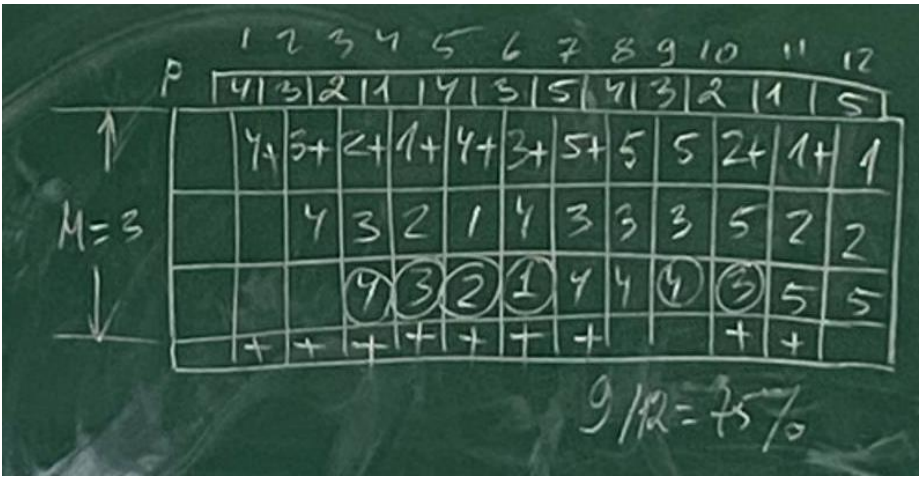 1 2 3 4 5 6 7 8 9 10 11 12
P 4 3 2 1 4 3 5 4 3 2 1 5
4+ 3+ 2+ 1+ 4+ 3+ 5+ 5 5 2+ 1+ 1
M=3 4 3 2 1 4 3 3 3 5 2 2
4 3 2 1 4 4 4 3 5 5
+ + + + + + + + +
9/12=75%